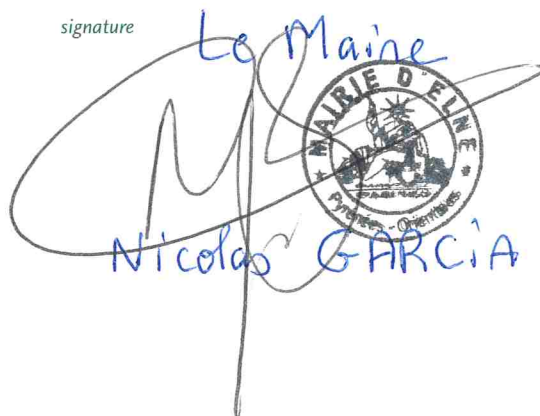 signature
Le Maire
MAIRIE D'ELNE
Pyrénées - Orientales
Nicolas GARCiA